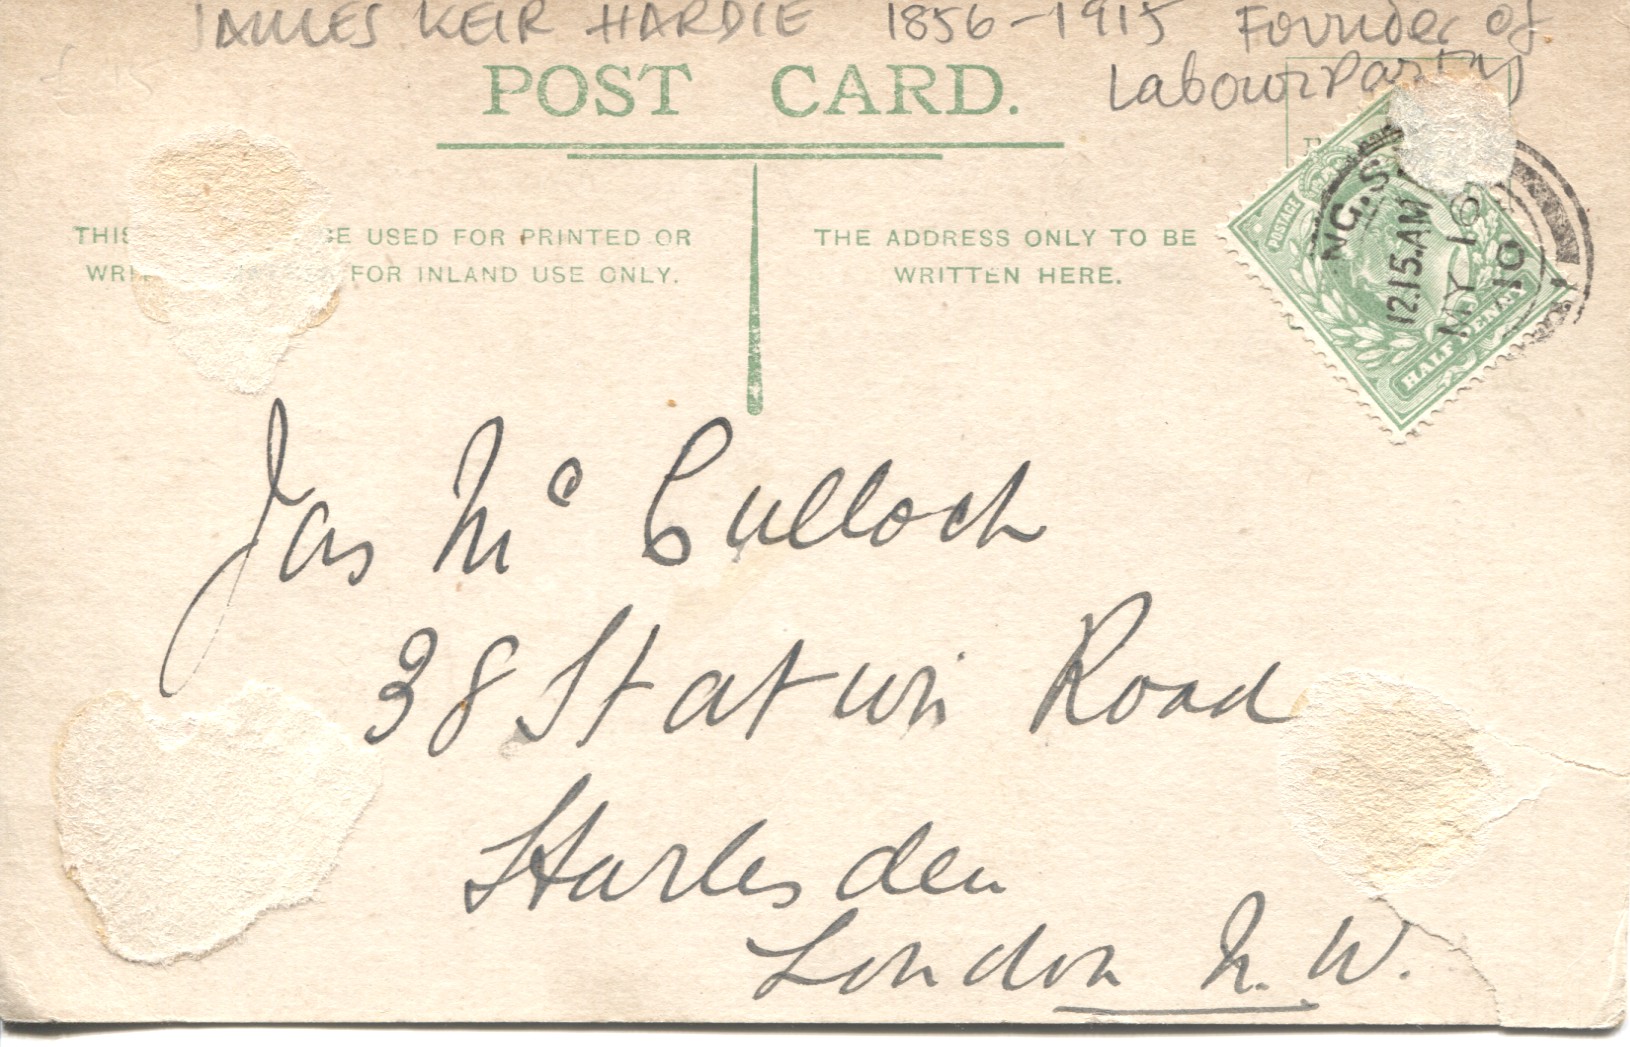 JAMES KEIR HARDIE 1856-1915 Founder of
Labour Party
POST CARD.
THIS SE USED FOR PRINTED OR
WRI FOR INLAND USE ONLY.
THE ADDRESS ONLY TO BE
WRITTEN HERE.
POSTAGE
HALF PENNY
NG. S.
12.15.AM
MY 16
10
Jas McCulloch
38 Road
Harlesden
London N.W.